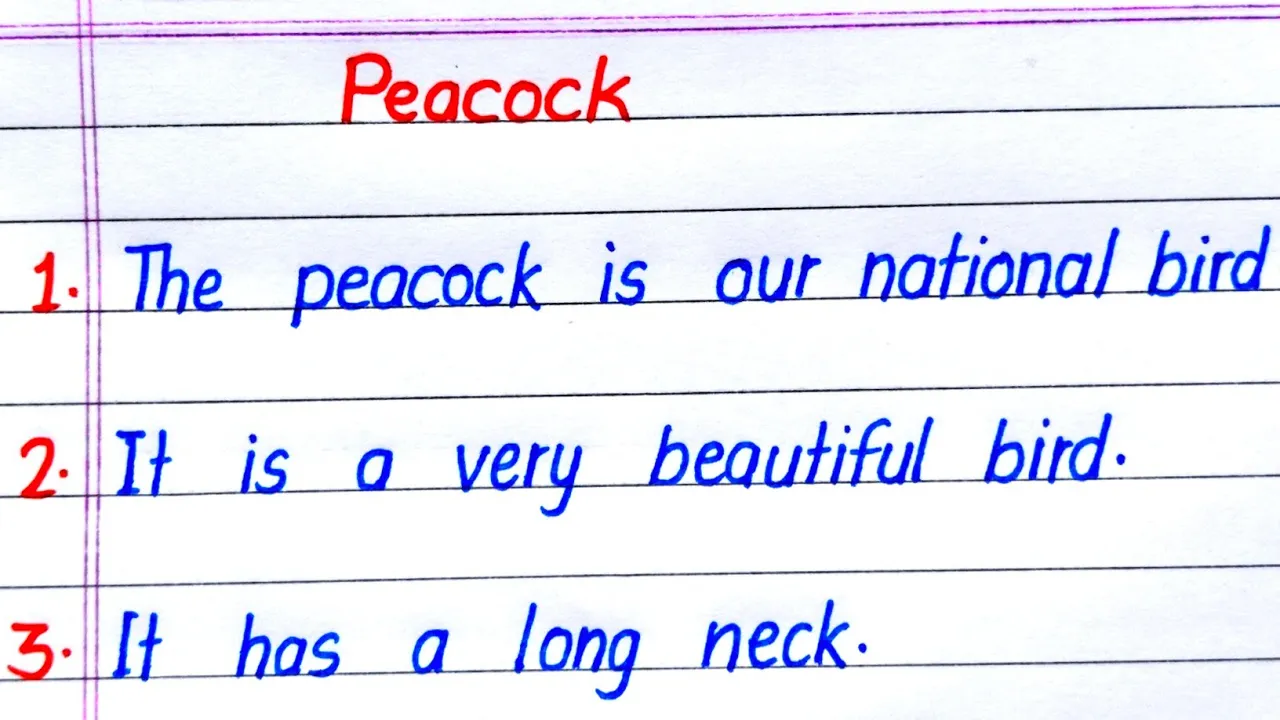 Peacock
1. The peacock is our national bird
2. It is a very beautiful bird.
3. It has a long neck.